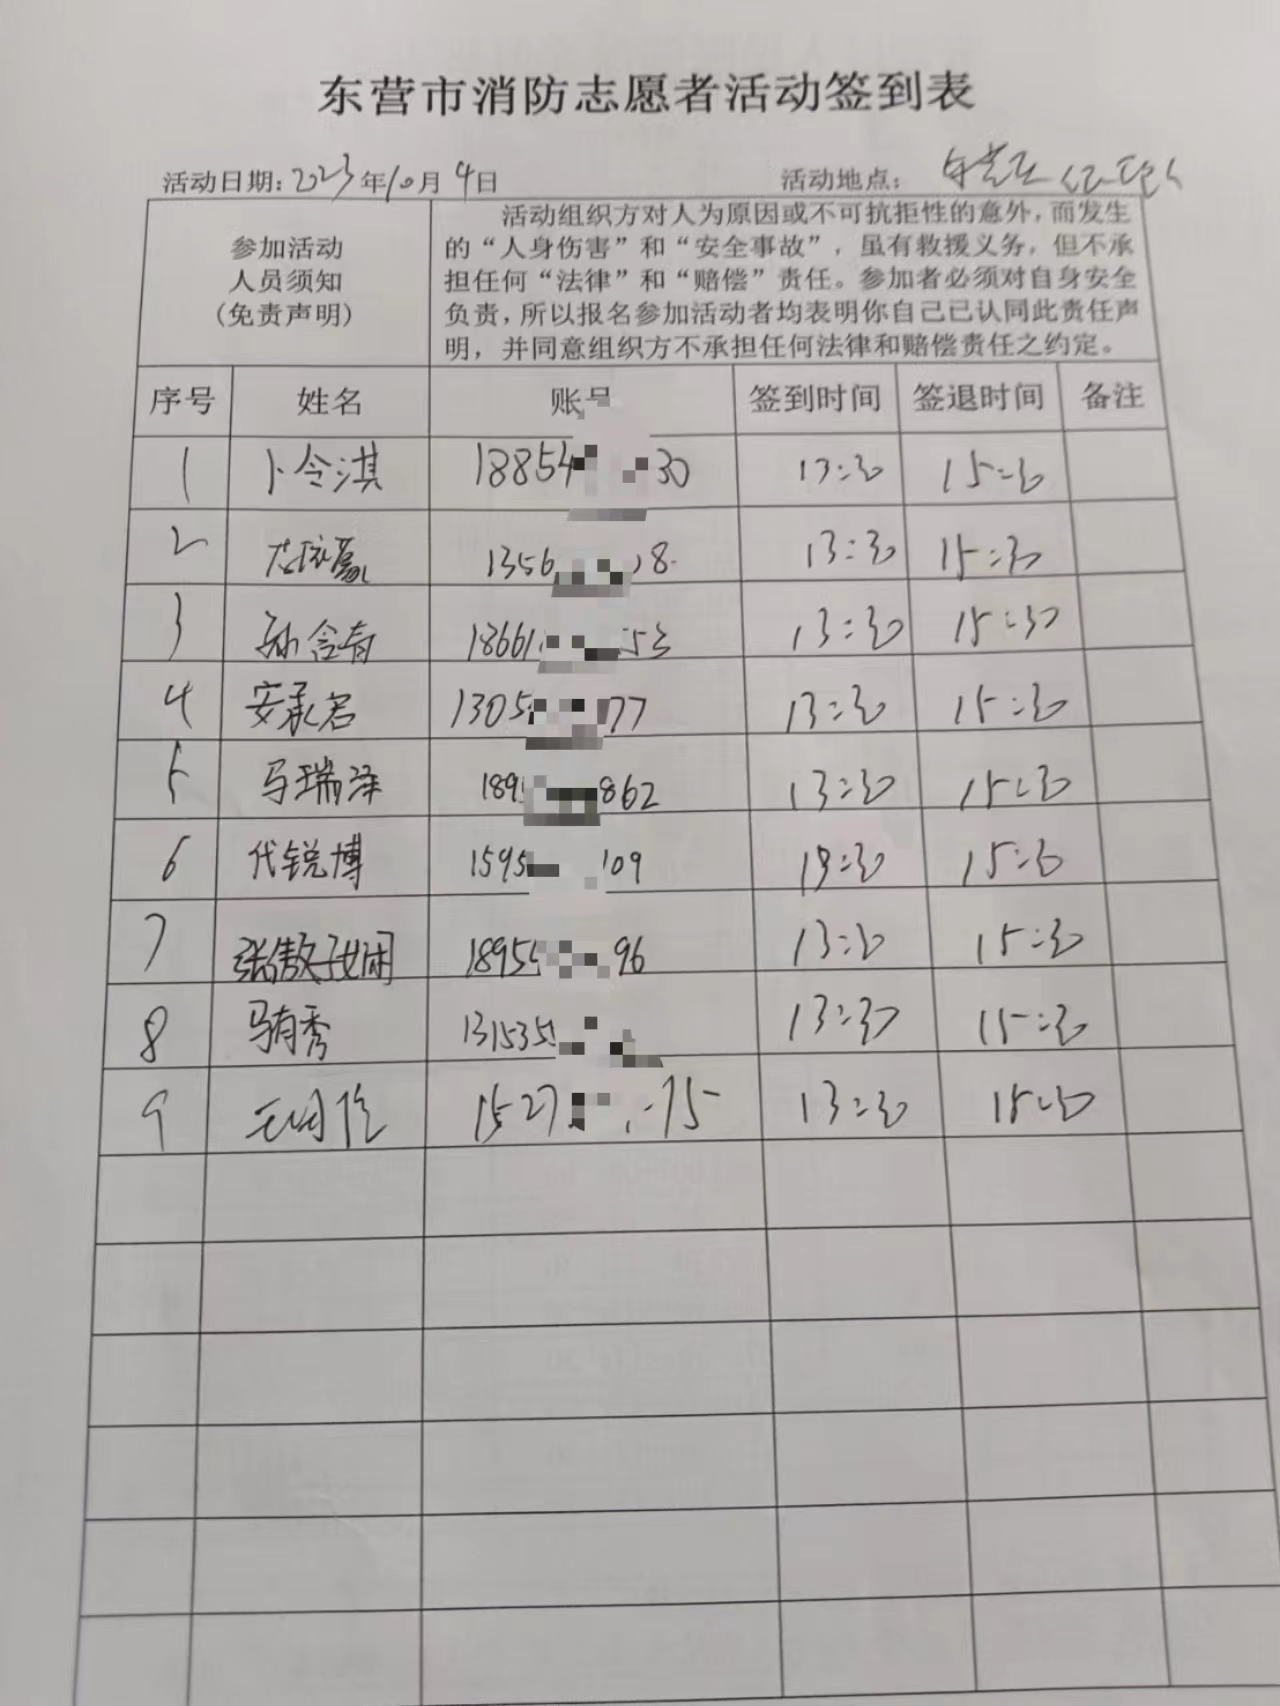 东营市消防志愿者活动签到表
活动日期：2023年10月4日 活动地点：
参加活动
人员须知
（免责声明）
活动组织方对人为原因或不可抗拒性的意外，而发生
的“人身伤害”和“安全事故”，虽有救援义务，但不承
担任何“法律”和“赔偿”责任。参加者必须对自身安全
负责，所以报名参加活动者均表明你自己已认同此责任声
明，并同意组织方不承担任何法律和赔偿责任之约定。
序号 姓名 账号 签到时间 签退时间 备注
1 卜令淇 18854 30 13:30 15:30
2 1356 8 13:30 15:30
3 孙含有 18661 53 13:30 15:30
4 安承君 1305 77 13:30 15:30
5 马瑞泽 189 862 13:30 15:30
6 代锐博 1595 109 13:30 15:30
7 1895 96 13:30 15:30
8 马有秀 131535 13:30 15:30
9 1527 75 13:30 15:30